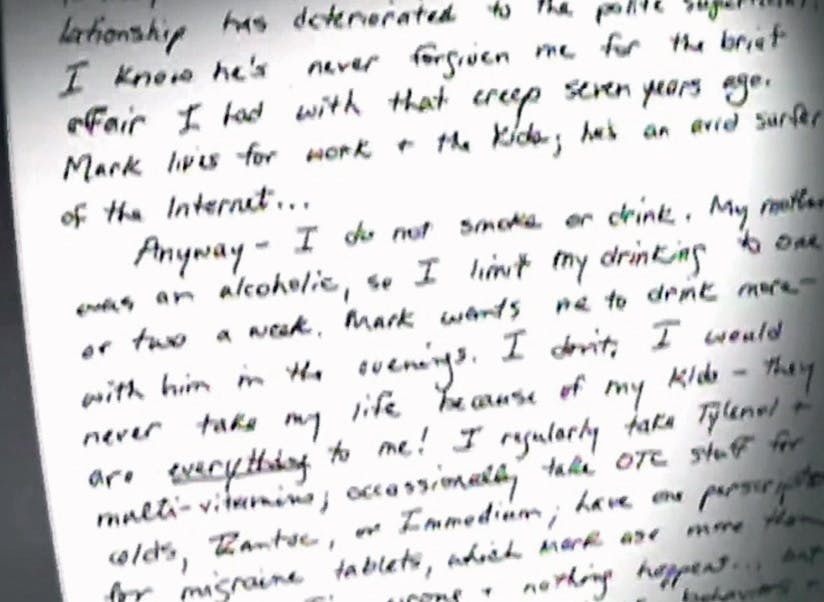 lationship has deteriorated to the polite
I know he's never forgiven me for the brief
affair I had with that creep seven years ago.
Mark lives for work + the kids; he's an avid surfer
of the Internet...
Anyway - I do not smoke or drink. My mother
was an alcoholic, so I limit my drinking to one
or two a week. Mark wants me to drink more -
with him in the evenings. I don't; I would
never take my life because of my kids - they
are everything to me! I regularly take Tylenol +
multi-vitamins; occassionally take OTC stuff for
colds, Zantac, or Immodium; have one
for migraine tablets, which Mark use more than
+ nothing happens... but
behaviors